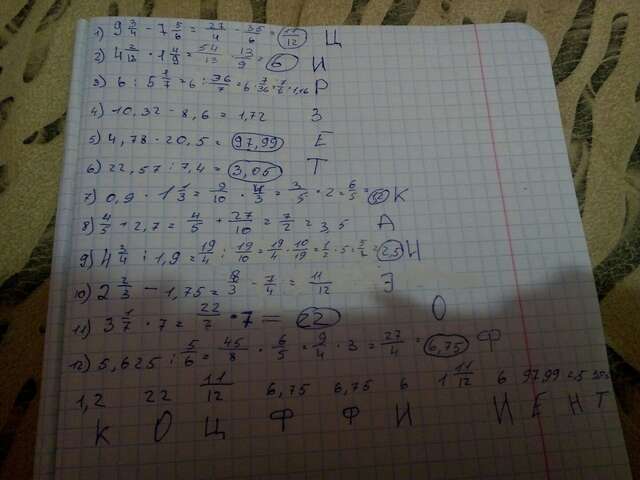 1) 9 3/4 - 7 5/6 = 27/4 - 35/6 = 11/12 Ц
2) 4 2/12 · 1 4/9 = 54/13 · 13/9 = 6 И
3) 6 : 5 1/7 = 6 : 36/7 = 6 · 7/36 = 7/6 = 1,16 Р
4) 10,32 - 8,6 = 1,72 З
5) 4,78 · 20,5 = 97,99 Е
6) 22,57 : 7,4 = 3,05 Т
7) 0,9 · 1 1/3 = 9/10 · 4/3 = 3/5 · 2 = 6/5 = 1,2 К
8) 4/5 + 2,7 = 4/5 + 27/10 = 7/2 = 3,5 А
9) 4 3/4 : 1,9 = 19/4 : 19/10 = 19/4 · 10/19 = 1/2 · 5 = 5/2 = 2,5 Н
10) 2 2/3 - 1,75 = 8/3 - 7/4 = 11/12 Э
11) 3 1/7 · 7 = 22/7 · 7 = 22 О
12) 5,625 : 5/6 = 45/8 · 6/5 = 9/4 · 3 = 27/4 = 6,75 Ф
1,2 22 11/12 6,75 6,75 6 1 11/12 6 97,99 2,5
К О Ц Ф Ф И И Е Н Т